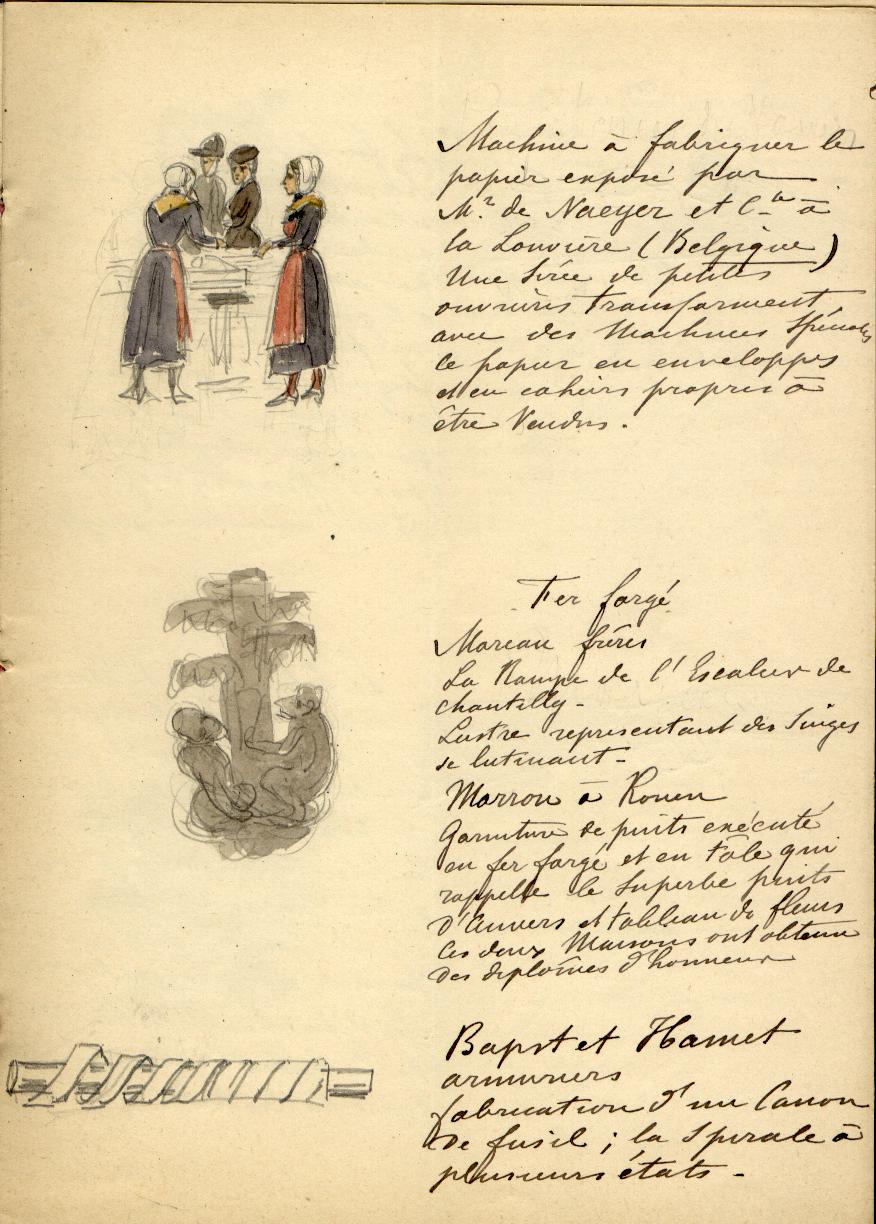 Machine à fabriquer le
papier exposé par
Mr de Naeyer et Cie à
la Louvière (Belgique)
Une Série de petites
ouvrières transforment
avec des Machines Spéciales
ce papier en enveloppes
et en cahiers propres à
être Vendus.
Fer forgé
Moreau frères
La Rampe de l'Escalier de
chantilly -
Lustre representant des Singes
se lutinant -
Marrou à Rouen
Garniture de puits exécuté
en fer forgé et en Tôle qui
rappelle le Superbe puits
d'Anvers et tableau de fleurs
Ces deux Maisons ont obtenu
des diplômes d'honneur
Bapst et Hamet
armuriers
fabrication d'un Canon
de fusil ; la Spirale à
plusieurs états -